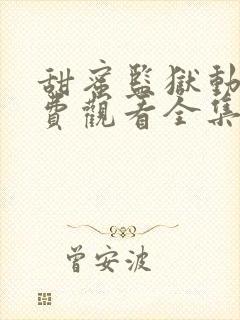 甜蜜監獄動
費觀看全集
曾安波